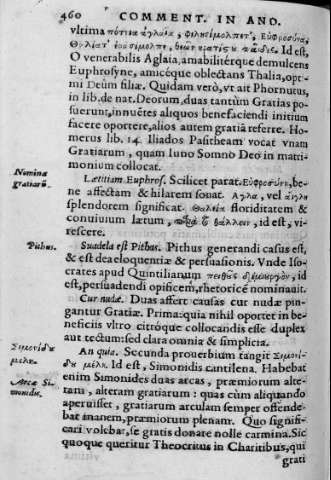 460 COMMENT. IN AND.
vltima πότνια ἀγλαΐα, φιλησίμολπέ τ', Εὐφροσύνα,
Θαλία τ' ἐρασίμολπε, θεῶν κρατίςου παῖδες. Id est,
O venerabilis Aglaia, amabilitérque demulcens
Euphrosyne, amicéque oblectans Thalia, opti-
mi Deûm filiæ. Quidam verò, vt ait Phornutus,
in lib. de nat. Deorum, duas tantùm Gratias po-
suerunt, innuẽtes aliquos benefaciendi initium
facere oportere, alios autem gratiã referre. Ho-
merus lib. 14. Iliados Pasitheam vocat vnam
Gratiarum, quam Iuno Somno Deo in matri-
monium collocat.
Nomina
gratiarũ.
Lætitiam. Euphros. Scilicet parat. Εὐφροσύνη, be-
ne affectam & hilarem sonat. Αγλα, vel αἴγλη
splendorem significat. Θαλεία floriditatem &
conuiuium lætum, τὸ θάλλειν, id est, vi-
rescere.
Pithus.
Suadela est Pithus. Pithus generandi casus est,
& est dea eloquentiæ & persuasionis. Vnde Iso-
crates apud Quintilianum πειθοῦς δημιουργὸν, id
est, persuadendi opificem, rhetoricẽ nominauit.
Cur nudæ. Duas affert causas cur nudæ pin-
gantur Gratiæ. Prima: quia nihil oportet in be-
neficiis vltro citróque collocandis esse duplex
aut tectum: sed clara omnia & simplicia.
Σιμονίδου
μέλη.
An quia. Secunda prouerbium tangit Σιμονί-
δου μέλη. Id est, Simonidis cantilena. Habebat
Arcæ Si-
monidis.
enim Simonides duas arcas, præmiorum alte-
ram, alteram gratiarum: quas cùm aliquando
aperuisset, gratiarum arculam semper offende-
bat inanem, præmiorum plenam. Quo signifi-
cari volebat, se gratis donare nolle carmina. Sic
quoque queritur Theocritus in Charitibus, qui
grati